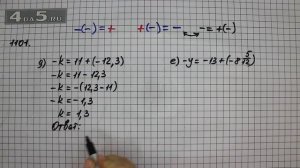 4APS.RU
-(-) = +    +(-) = -    - = +(-)
1101.
g) -k = 11 + (-12,3)
-k = 11 - 12,3
-k = -(12,3 - 11)
-k = -1,3
k = 1,3
Ответ:
e) -y = -13 + (-8 5/12)